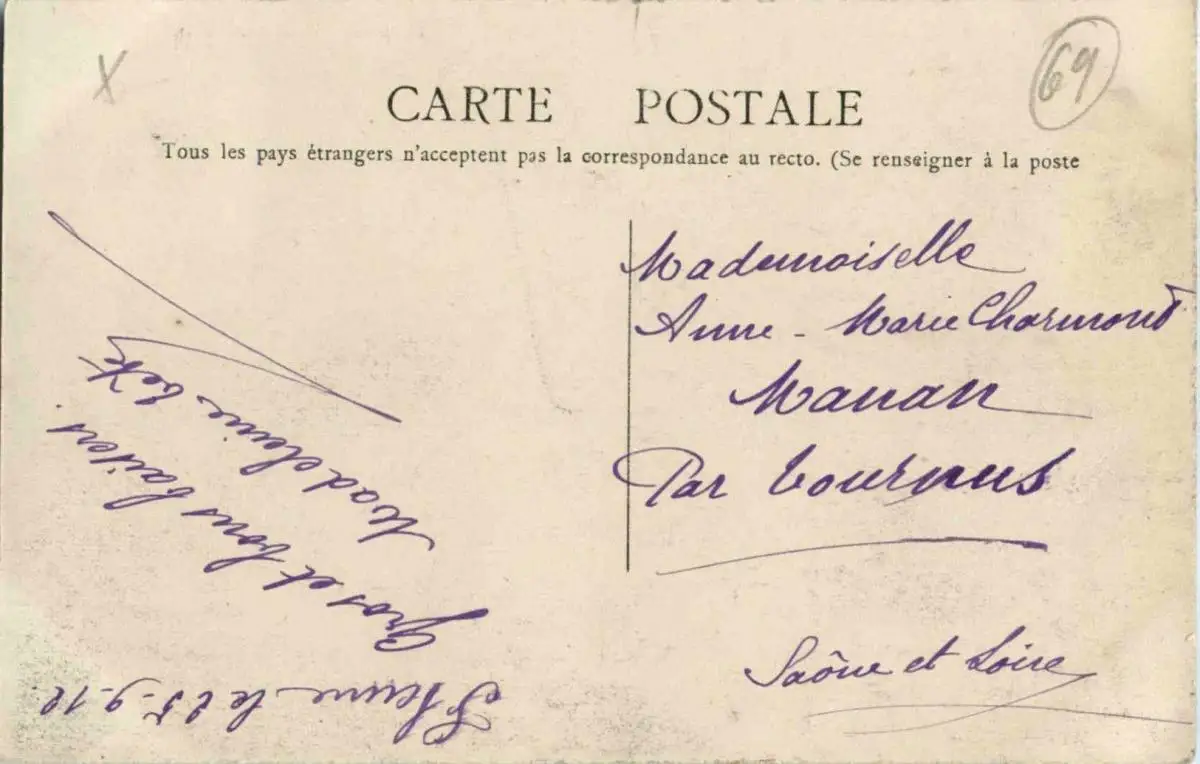 X
69
CARTE POSTALE
Tous les pays étrangers n'acceptent pas la correspondance au recto. (Se renseigner à la poste
Mademoiselle
Anne-Marie Charmont
Manan
Par Tournus
Saône et Loire
le 25-9-12
Gros et bons baisers
Madeleine